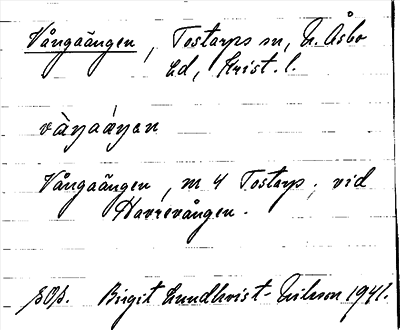 Vångaängen, Tostarps sn, N. Åsbo
hd, Krist. l.
vàŋaáŋen
Vångaängen, m 4 Tostarp, vid
Havrevången.
Birgit Lundkvist-Nilsson 1941.